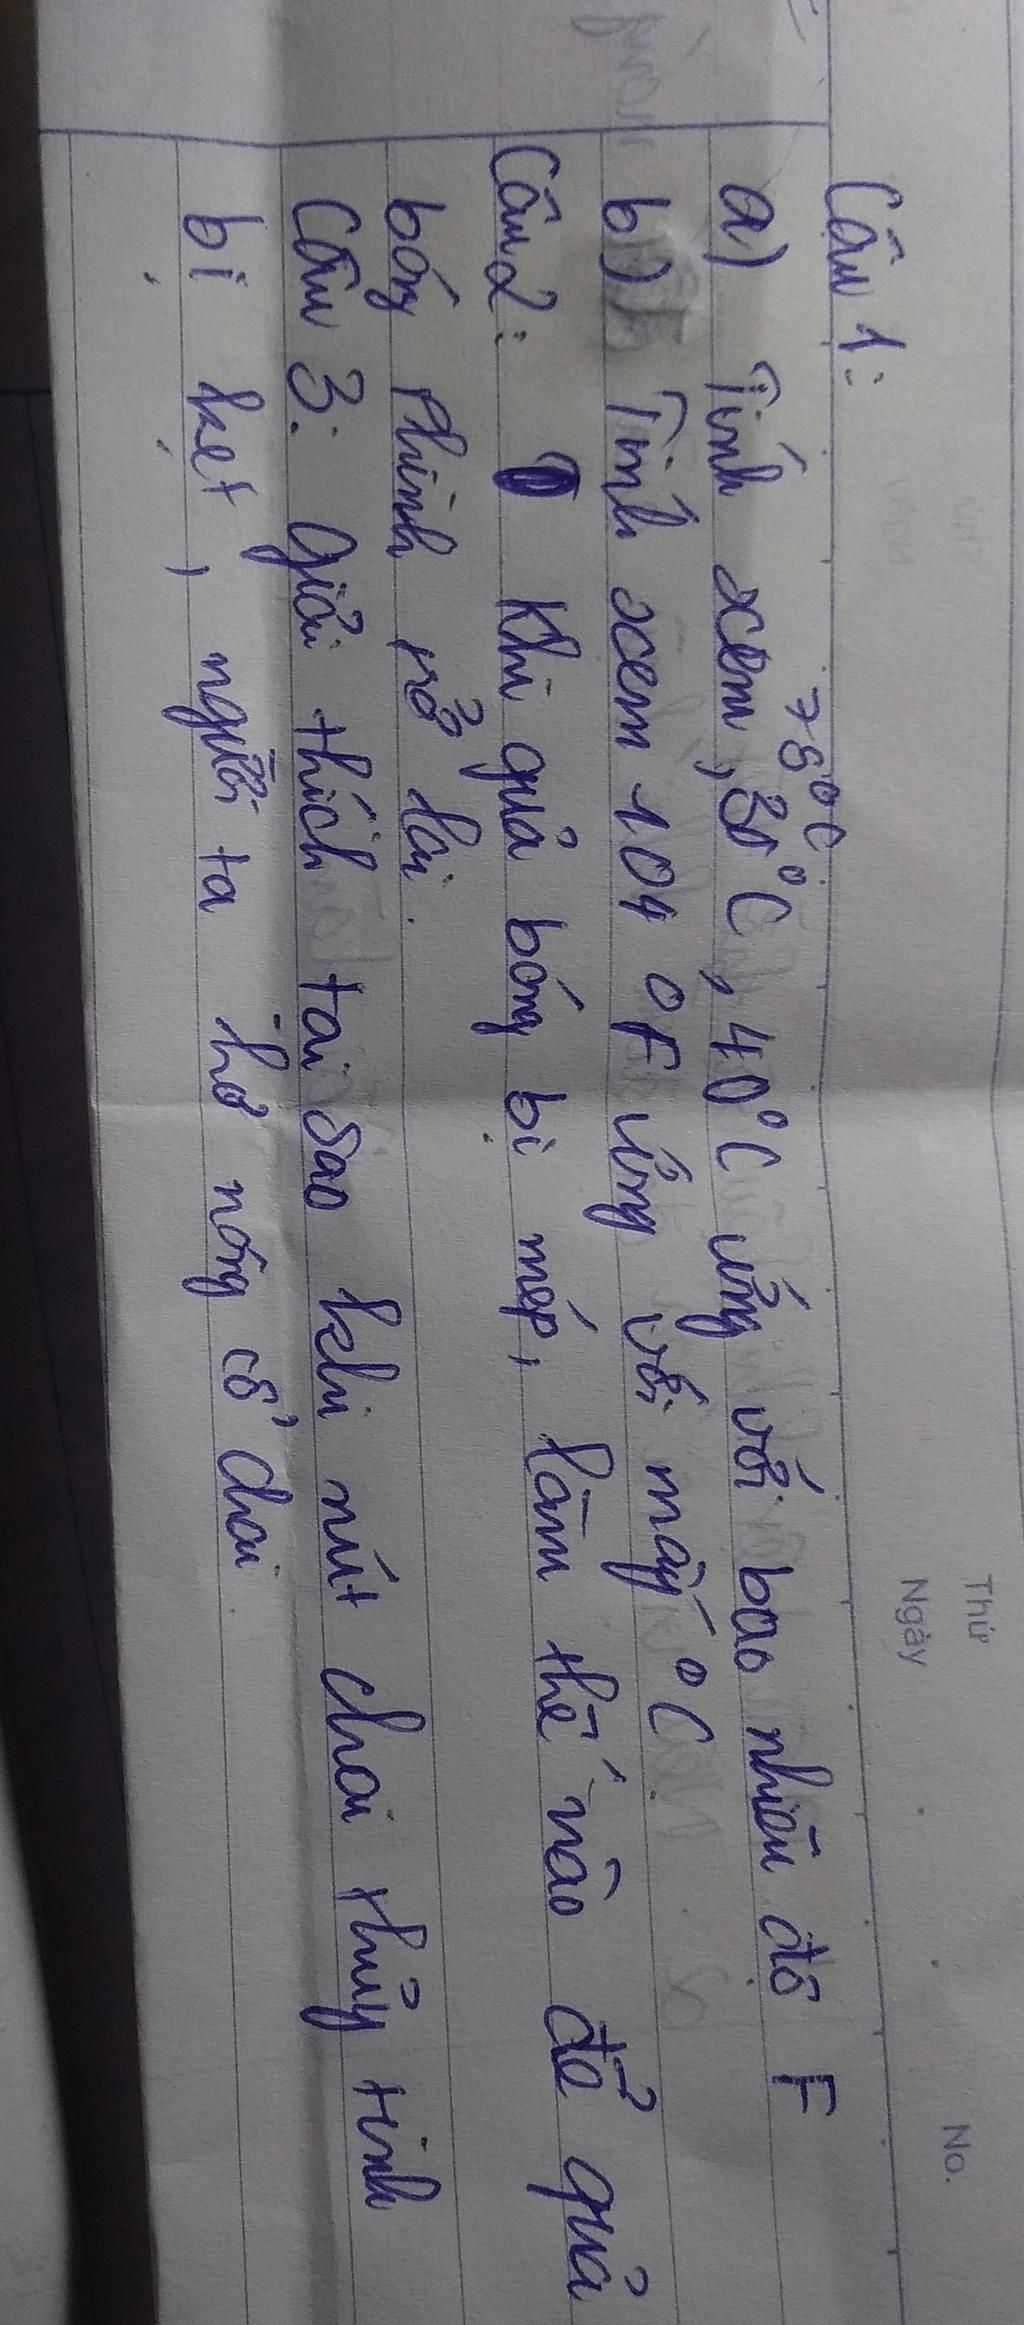 Thứ
Ngày
No.
Câu 1:
78°C
a) Tính xem, 30°C, 40°C ứng với bao nhiêu độ F
b) Tính xem 104 0F ứng với mấy °C
Câu 2: Khi quả bóng bị mép, làm thế nào để quả
bóng phình rở lại.
Câu 3: Giải thích tại sao khi nút chai thủy tinh
bị kẹt, người ta hơ nóng cổ chai.